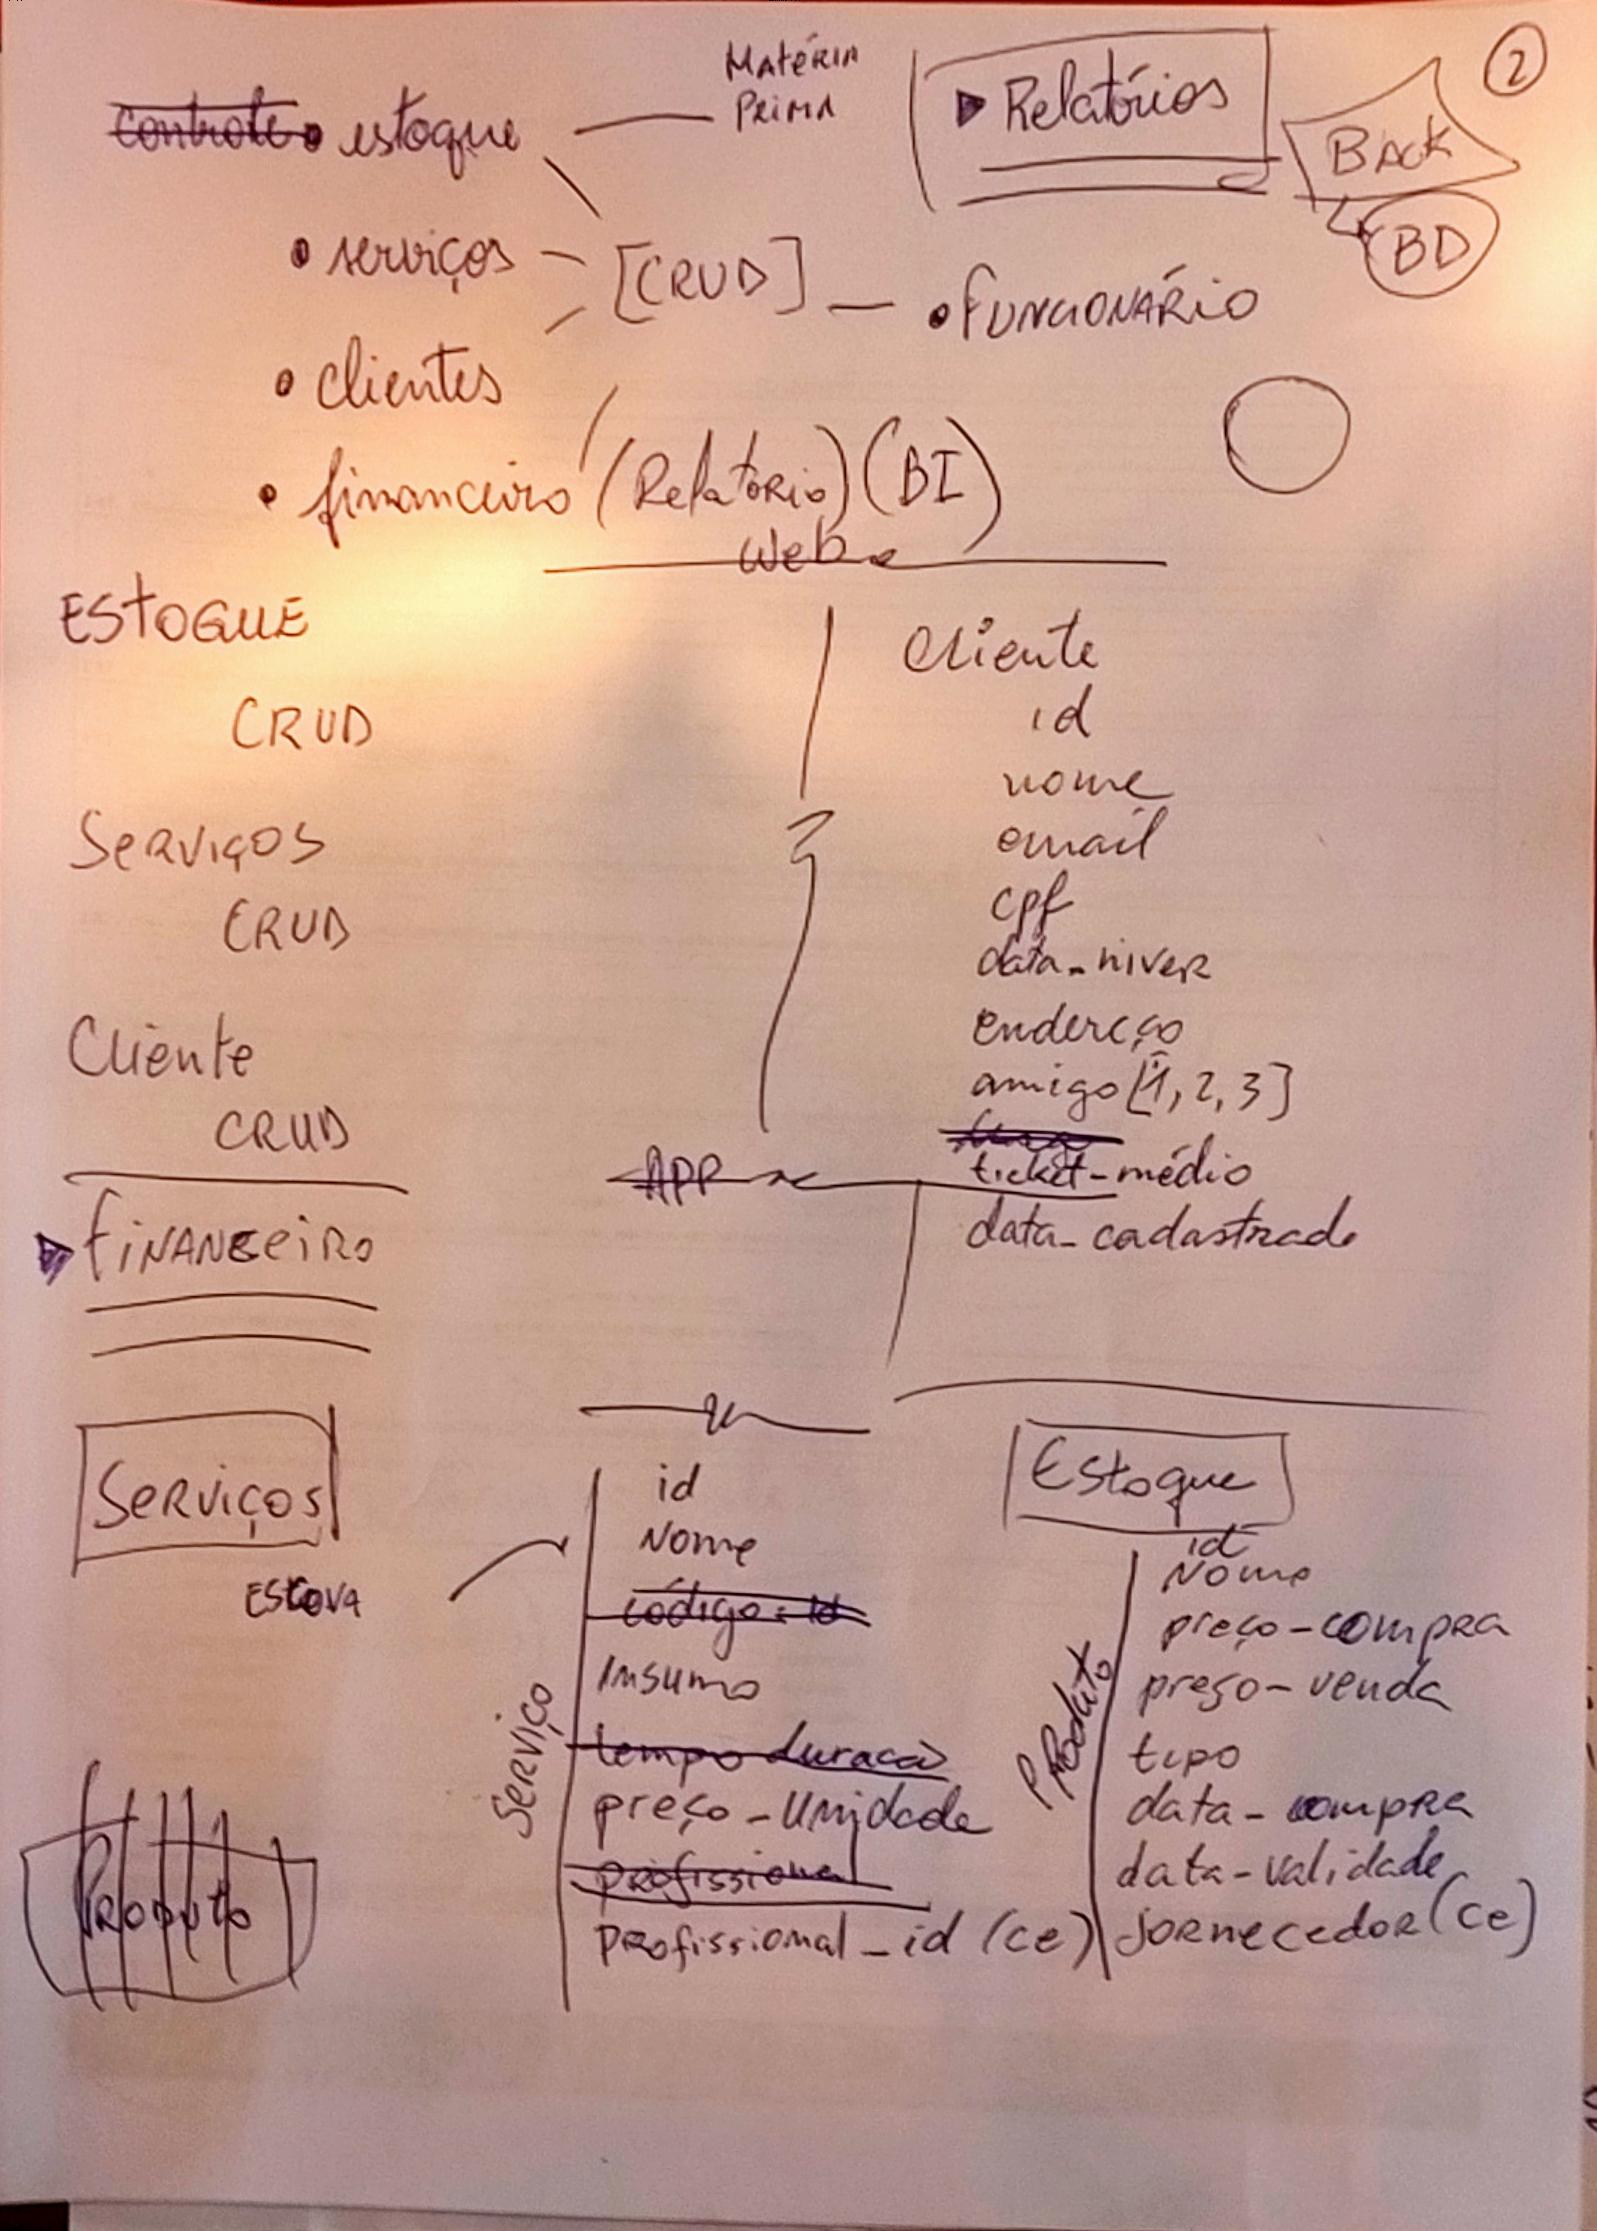 Matéria
Prima
controle • estoque
▶ Relatórios
2
BACK
BD
• serviços
[CRUD]
• Funcionário
• clientes
• financeiro (Relatório) (BI)
Web
ESTOQUE
CRUD
Serviços
CRUD
Cliente
CRUD
▶ Financeiro
Cliente
id
nome
email
cpf
data_niver
endereço
amigo [1, 2, 3]
ticket-médio
data_cadastrado
APP
Serviços
ESCOVA
Produto
Serviço
id
Nome
código: id
Insumo
tempo duracão
preço_unidade
profissional
profissional_id (ce)
Estoque
Produto
id
Nome
preço-compra
preço-venda
tipo
data-compra
data-validade
fornecedor (ce)